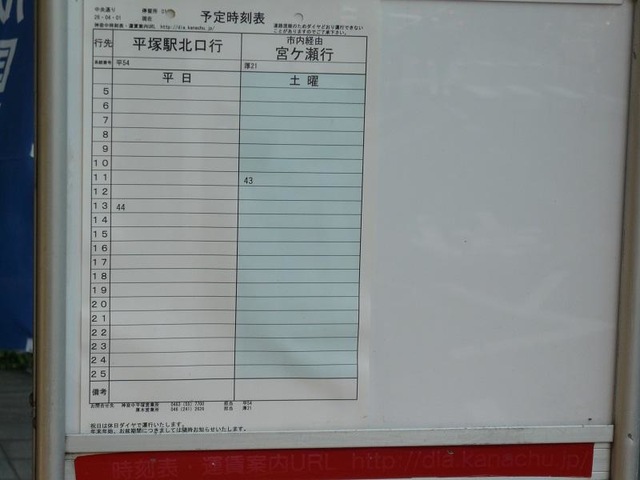 中央通り
予定時刻表
神奈中時刻表・運賃案内URL http://dia.kanachu.jp/
道路混雑のためダイヤどおり運行できない
ことがありますのでご了承下さい。
行先 平塚駅北口行 市内経由
宮ケ瀬行
系統番号 平54 厚21
平日 土曜
5
6
7
8
9
10
11 43
12
13 44
14
15
16
17
18
19
20
21
22
23
24
25
備考
お問合せ先 神奈中平塚営業所 担当 平54
厚木営業所 046 (241) 2626 担当 厚21
祝日は休日ダイヤで運行いたします。
年末年始、お盆期間につきましては随時お知らせいたします。
時刻表・運賃案内URL http://dia.kanachu.jp/